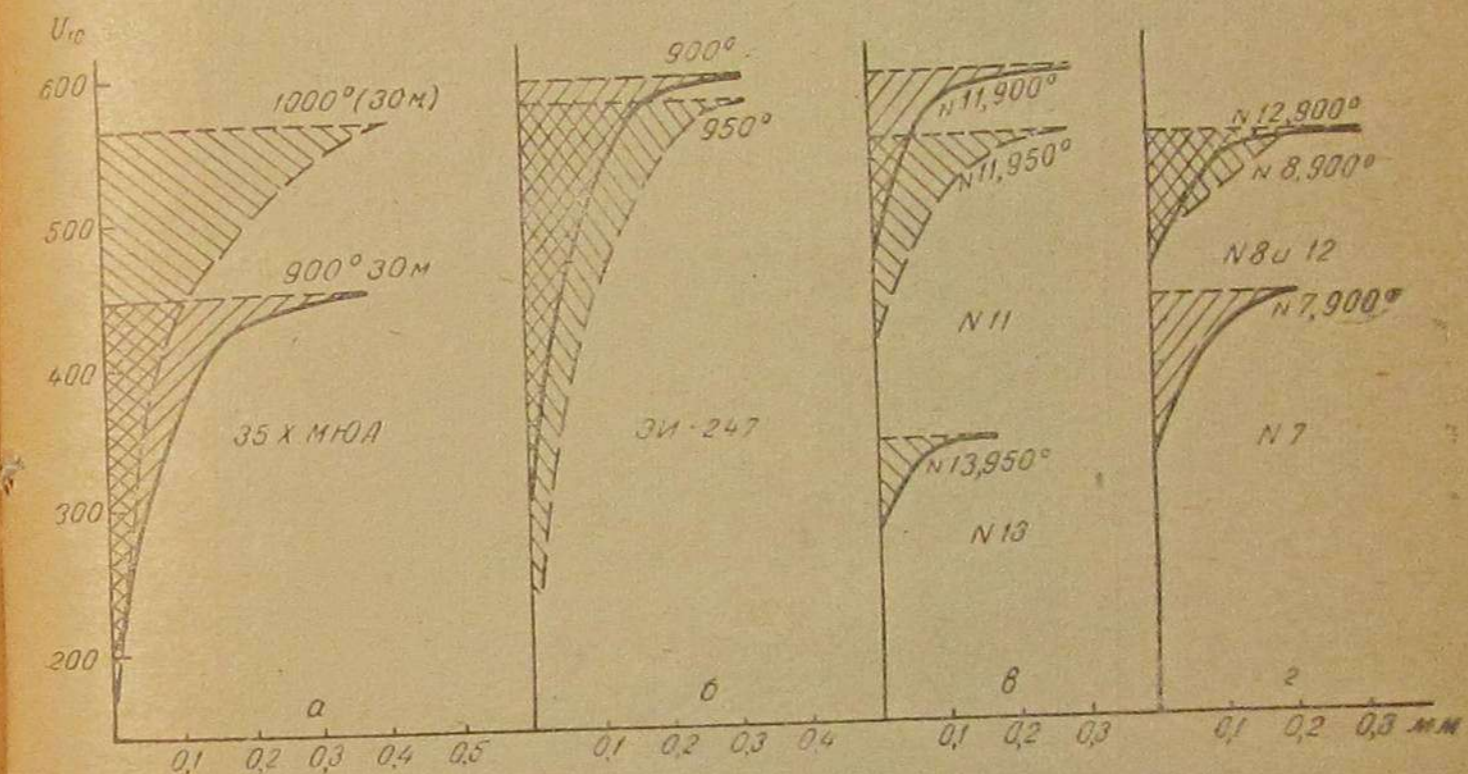 U₁₀
600
500
400
300
200
1000°(30м)
900° 30м
35 X МЮА
а
0,1 0,2 0,3 0,4 0,5
900°
950°
ЭИ-247
б
0,1 0,2 0,3 0,4
N11,900°
N11,950°
N 11
N13,950°
N 13
в
0,1 0,2 0,3
N12,900°
N 8,900°
N 8 и 12
N 7,900°
N 7
г
0,1 0,2 0,3 мм